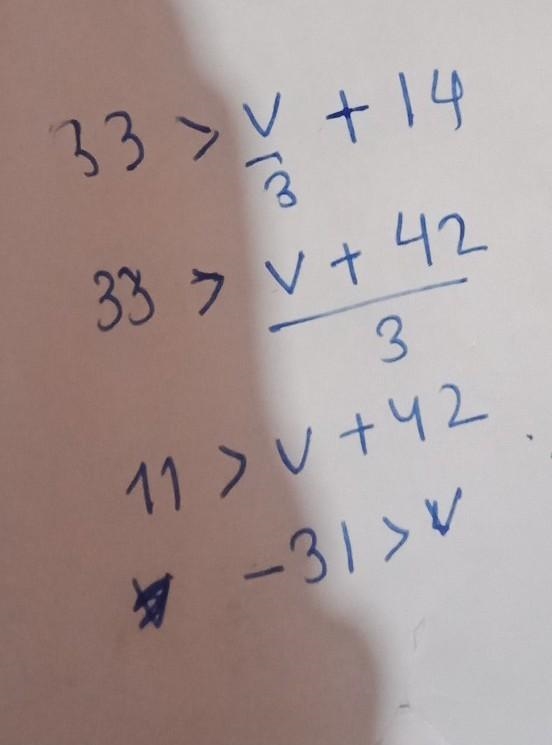 33 > v/3 + 14
33 > (v + 42)/3
11 > v + 42
-31 > v